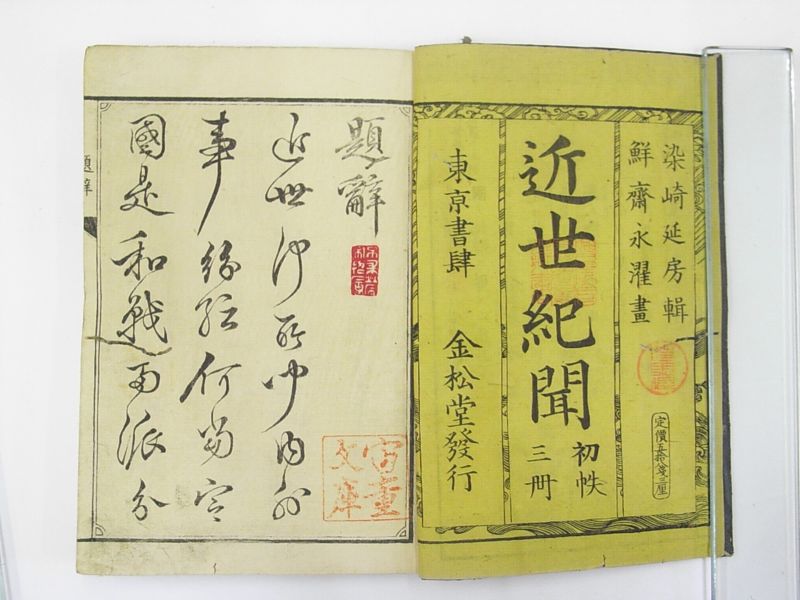 染崎延房輯
鮮齋永濯畫
近世紀聞
初帙
三冊
東亰書肆 金松堂發行
題辭
近世何所聞内外
事紛紜何當定
國是和戰兩派分
題辭